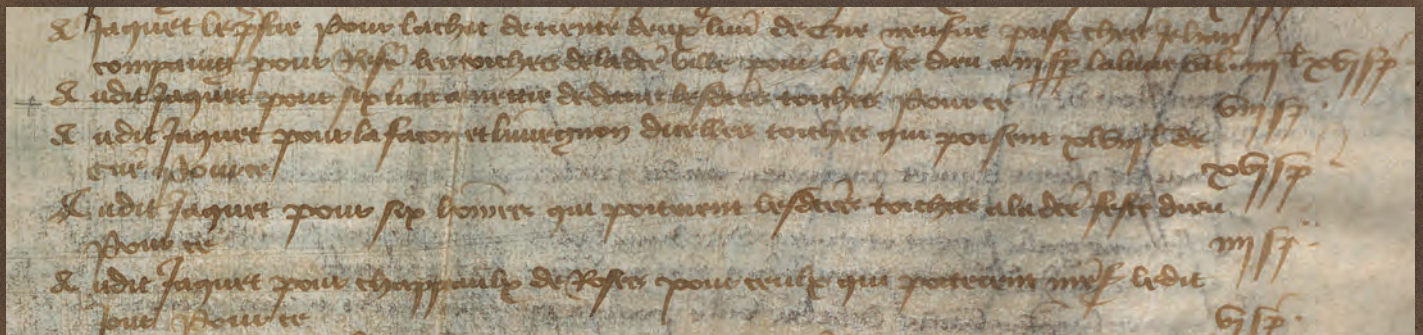 A Jaquet le pstre pour lachat de trente deux livr de cire neufve prise chez Jehan
compaing pour Refe les torches de la dce ville pour la feste dieu a iiij s p la livre val vj l viij s p
A udit Jaquet pour six lias a mettre dedans lesdces torches pour ce viij s p
A udit Jaquet pour la facon et lumegnon dicelles torches qui poisent xlviij l de
cire pour ce xvj s p
A udit Jaquet pour six homes qui porterent lesdces torches a la dce feste dieu
pour ce iiij s p
A udit Jaquet pour chappeaulx de Roses pour ceulx qui porterent ledit
jour pour ce vj s p